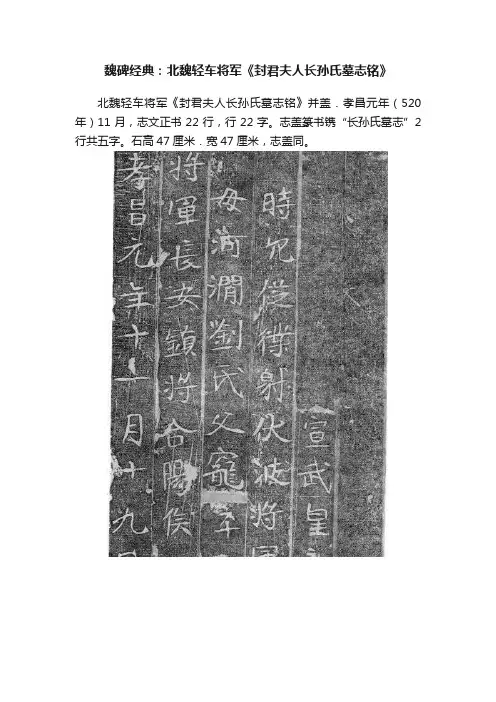 魏碑经典：北魏轻车将军《封君夫人长孙氏墓志铭》
北魏轻车将军《封君夫人长孙氏墓志铭》并盖．孝昌元年（520
年）11 月，志文正书 22 行，行 22 字。志盖篆书镌“长孙氏墓志”2
行共五字。石高 47 厘米．宽 47 厘米，志盖同。
宣武皇
時兄從僕射伏波將軍
母河澗劉氏父寵年
将軍長安鎮将合陽侯
孝昌元年十一月十九日